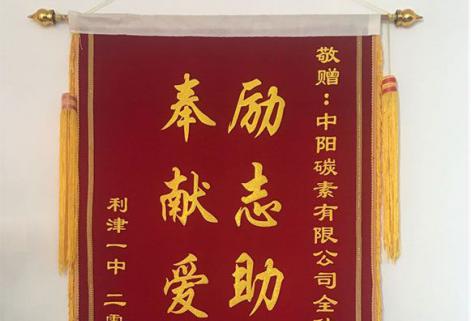 敬赠：中阳碳素有限公司全
励志助
奉献爱
利津一中 二零